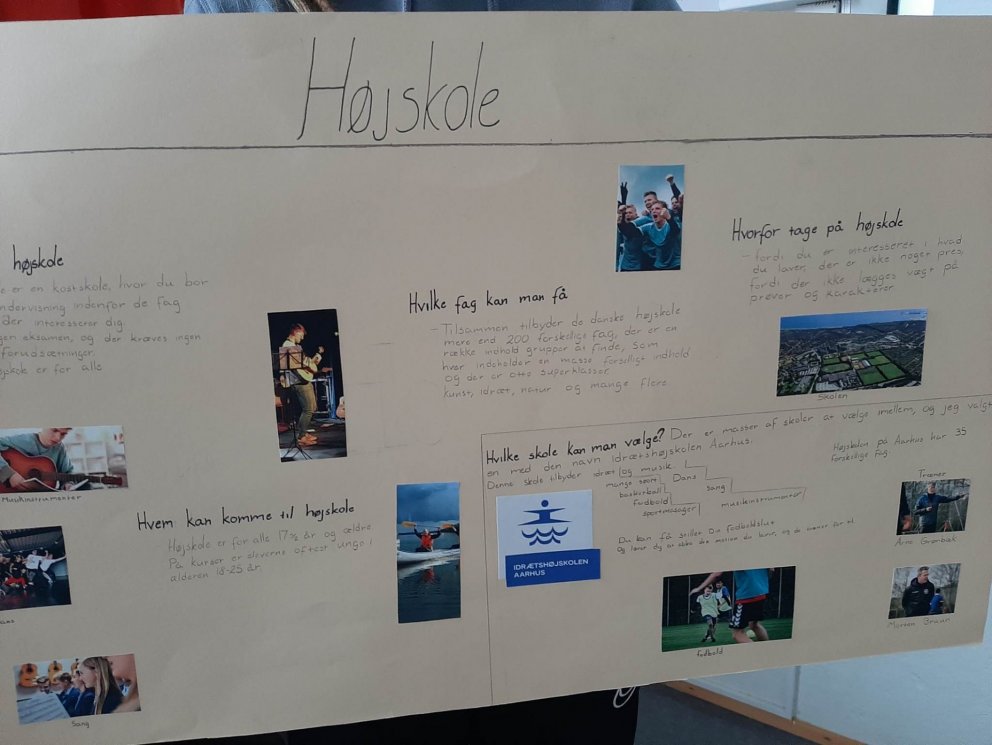 Højskole
højskole
e er en kostskole, hvor du bor
ndervisning indenfor de fag
der interesserer dig.
gen eksamen, og der kræves ingen
forudsætninger.
jskole er for alle
Musikinstrumenter
ans
Sang
Hvem kan komme til højskole
Højskole er for alle 17½ år og ældre.
På kurser er eleverne oftest unge i
alderen 18-25 år.
Hvilke fag kan man få
- Tilsammen tilbyder de danske højskole
mere end 200 forskellige fag, der er en
række indhold grupper at finde, som
hver indeholder en masse forskelligt indhold
og der er otte superklasser.
kunst, idræt, natur og mange flere.
Hvorfor tage på højskole
- fordi du er interesseret i hvad
du laver, der er ikke noget pres,
fordi der ikke lægges vægt på
prøver og karakterer
Skolen
Hvilke skole kan man vælge? Der er masser af skoler at vælge imellem, og jeg valgt
en med den navn idrætshøjskolen Aarhus.
Denne skole tilbyder idræt og musik
mange sport
basketball
fodbold
sportmassager
Dans
sang
musikinstrumenter
Højskolen på Aarhus har 35
forskellige fag.
IDRÆTSHØJSKOLEN
AARHUS
Du kan få stillet Du fodboldslut
Og lærer dig at elske den motion du laver, og de træner for til
fodbold
Træner
Arne Grønbæk
Morten Bruun